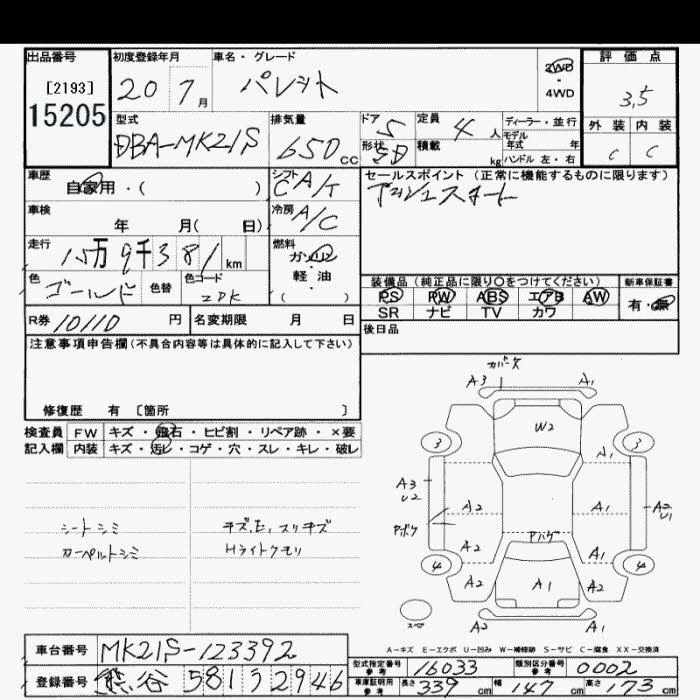 出品番号
[2193]
15205
初度登録年月
20 7月
車名・グレード
パレット
2WD
・
4WD
評価点
3,5
型式
DBA-MK21S
排気量
650cc
ドア 5
形状 5D
定員 4人
積載 kg
ディーラー・並行
モデル
年式 年
ハンドル 左・右
外装 内装
C C
車歴
自家用・( )
シフト
C A/T
セールスポイント (正常に機能するものに限ります)
プッシュスタート
車検
年 月( 日)
冷房
A/C
走行
15万9千381km
燃料
ガソリン
軽・油
( )
色
ゴールド
色替
色コード
ZDK
装備品 (純正品に限り○をつけてください)
新車保証書
PS PW ABS エアB AW
有・無
SR ナビ TV カワ
R券 10110円
名変期限 月 日
後日品
注意事項申告欄(不具合内容等は具体的に記入して下さい)
修復歴 有 〔箇所 〕
検査員 FW キズ・飛石・ヒビ割・リペア跡・×要
記入欄 内装 キズ・汚レ・コゲ・穴・スレ・キレ・破レ
シートシミ
カーペットシミ
キズ,E,スリキズ
Hライトクモリ
A3 A1
W2
3 3
A1
A3
U2
A2 A1
A2
U1
A2 A1
4 4
A2 A1 A2
A2 A1
A-キズ E-エクボ U-凹み W-補修跡 S-サビ C-腐食 XX-交換済
車台番号 MK21S-123392
登録番号 熊谷 581 2946
型式指定番号
参考
16033
類別区分番号
参考
0002
車庫証明用
参考
長さ 339cm 幅 147cm 高さ 173cm